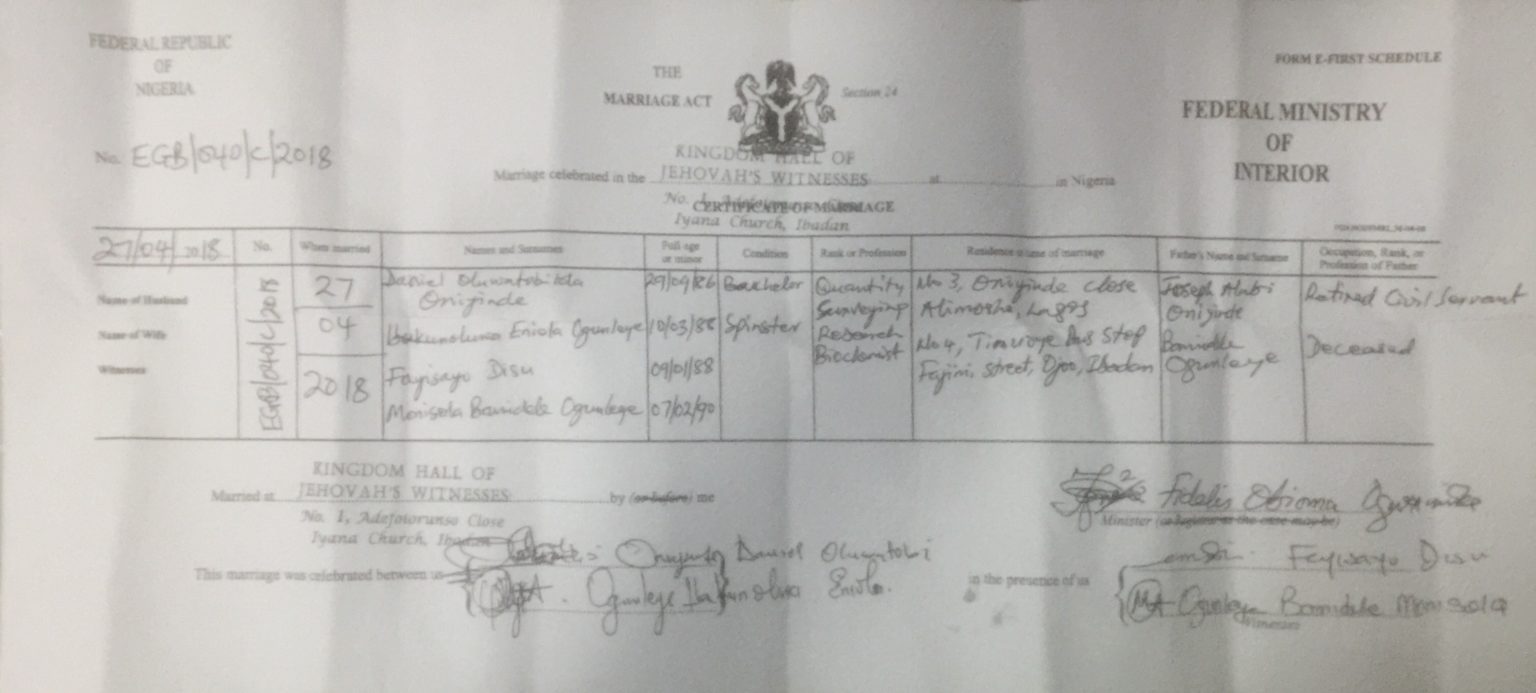 FEDERAL REPUBLIC
OF
NIGERIA
No. EGB/040/C/2018
THE
MARRIAGE ACT
Section 24
FORM E-FIRST SCHEDULE
FEDERAL MINISTRY
OF
INTERIOR
KINGDOM HALL OF
Marriage celebrated in the JEHOVAH'S WITNESSES at in Nigeria
No.
CERTIFICATE OF MARRIAGE
Iyana Church, Ibadan
27/04/2018 No. When married Names and Surnames Full age or minor Condition Rank or Profession Residence at time of marriage Father's Name and Surname Occupation, Rank, or Profession of Father
EGB/040/C/2018
27
04
2018
Name of Husband Daniel Oluwatobiloba 29/09/86 Bachelor Quantity No 3, Onijinde close Joseph Alabi Retired Civil Servant
Onijinde Surveying Alimosho, Lagos Onijinde
Name of Wife Ibakunoluwa Eniola Ogunleye 10/03/88 Spinster Research No 4, Bus Stop Bamidele Deceased
Biochemist Street, Ojoo, Ibadan Ogunleye
Witnesses Feyisayo Disu 09/01/88
Monisola Bamidele Ogunleye 07/02/90
KINGDOM HALL OF
Married at JEHOVAH'S WITNESSES by (or before) me
No. 1, Adefotorunso Close
Iyana Church, Ibadan
Fidelis Obioma
Minister (or Registrar as the case may be)
This marriage was celebrated between us
Daniel Oluwatobi
Ogunleye Ibakunoluwa Eniola.
in the presence of us
Feyisayo Disu
Ogunleye Bamidele Monisola
Witnesses